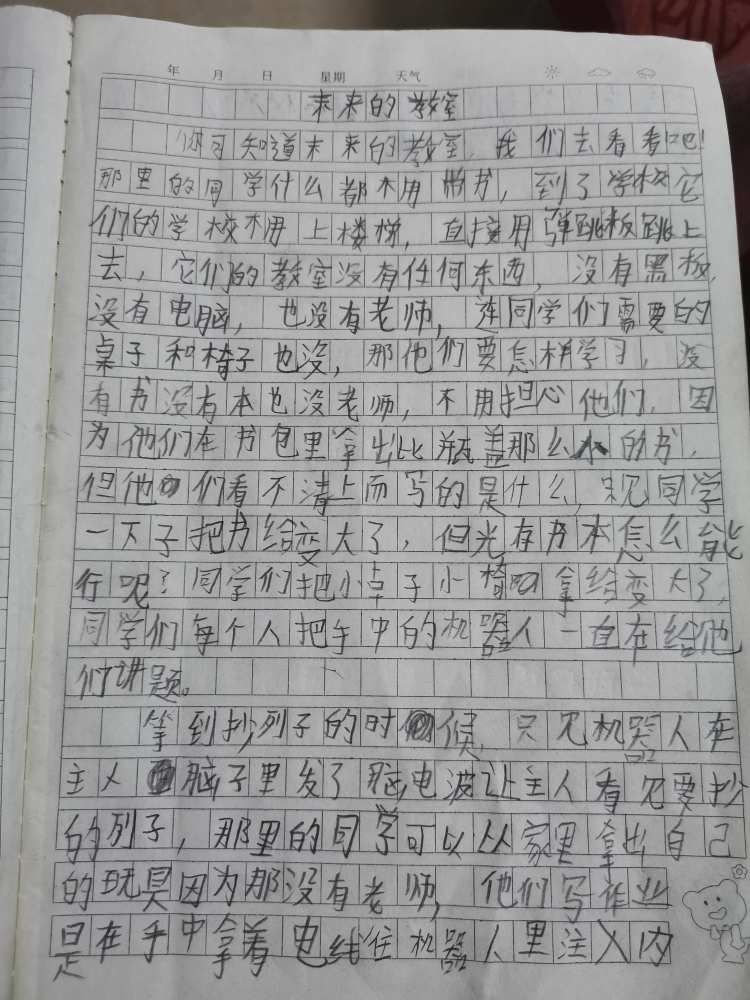 年 月 日 星期 天气
未来的教室
你可知道未来的教室,我们去看看吧!
那里的同学什么都不用带书,到了学校它
们的学校不用上楼梯,直接用弹跳板跳上
去,它们的教室没有任何东西,没有黑板,
没有电脑,也没有老师,连同学们需要的
桌子和椅子也没,那他们要怎样学习,没
有书没有本也没老师,不用担心他们,因
为他们在书包里拿出比瓶盖那么小的书,
但他们看不清上面写的是什么,只见同学
一下子把书给变大了,但光有书本怎么能
行呢?同学们把小桌子小椅拿给变大了,
同学们每个人把手中的机器人一直在给他
们讲题。
等到抄列子的时候,只见机器人在
主人脑子里发了脑电波让主人看见要抄
的列子,那里的同学可以从家里拿出自己
的玩具因为那没有老师,他们写作业
是在手中拿着电线往机器人里注入内